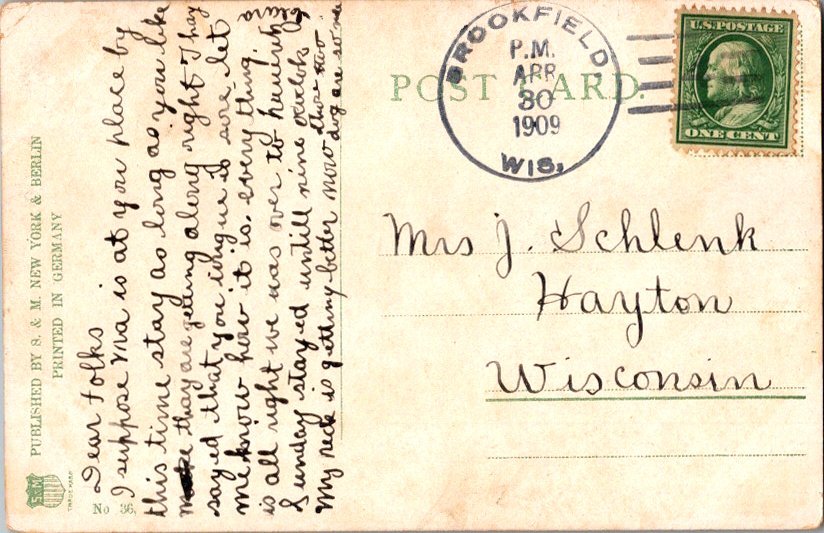 PUBLISHED BY S. & M. NEW YORK & BERLIN
PRINTED IN GERMANY
S&M
TRADE MARK
No 36.
Dear Folks
I suppose Ma is at you place by
this time stay as long as you like
thay are getting along right
sayed that you is sore let
me know how it is. every thing
is all right we was over to
Sunday stayed untill nine oclock
My neck is getting better now
dog are
POST CARD.
BROOKFIELD,
P.M.
APR
30
1909
WIS.
U.S. POSTAGE
ONE CENT
Mrs J. Schlenk
Hayton
Wisconsin